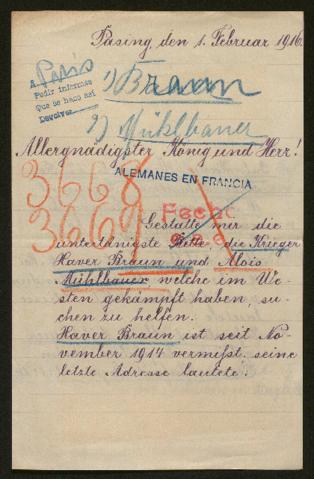 Pasing, den 1. Februar 1916.
A Paris
Pedir informes
Que se haco asi
Devolver
1) Braun
2) Mühlbauer
Allergnädigster König und Herr!
3668
3669
ALEMANES EN FRANCIA
Fecho
Gestatte mir die
untertänigste Bitte, die Krieger
Xaver Braun und Alois
Mühlbauer welche im We-
sten gekämpft haben, su-
chen zu helfen.
Xaver Braun ist seit No-
vember 1914 vermißt, seine
letzte Adresse lautete: